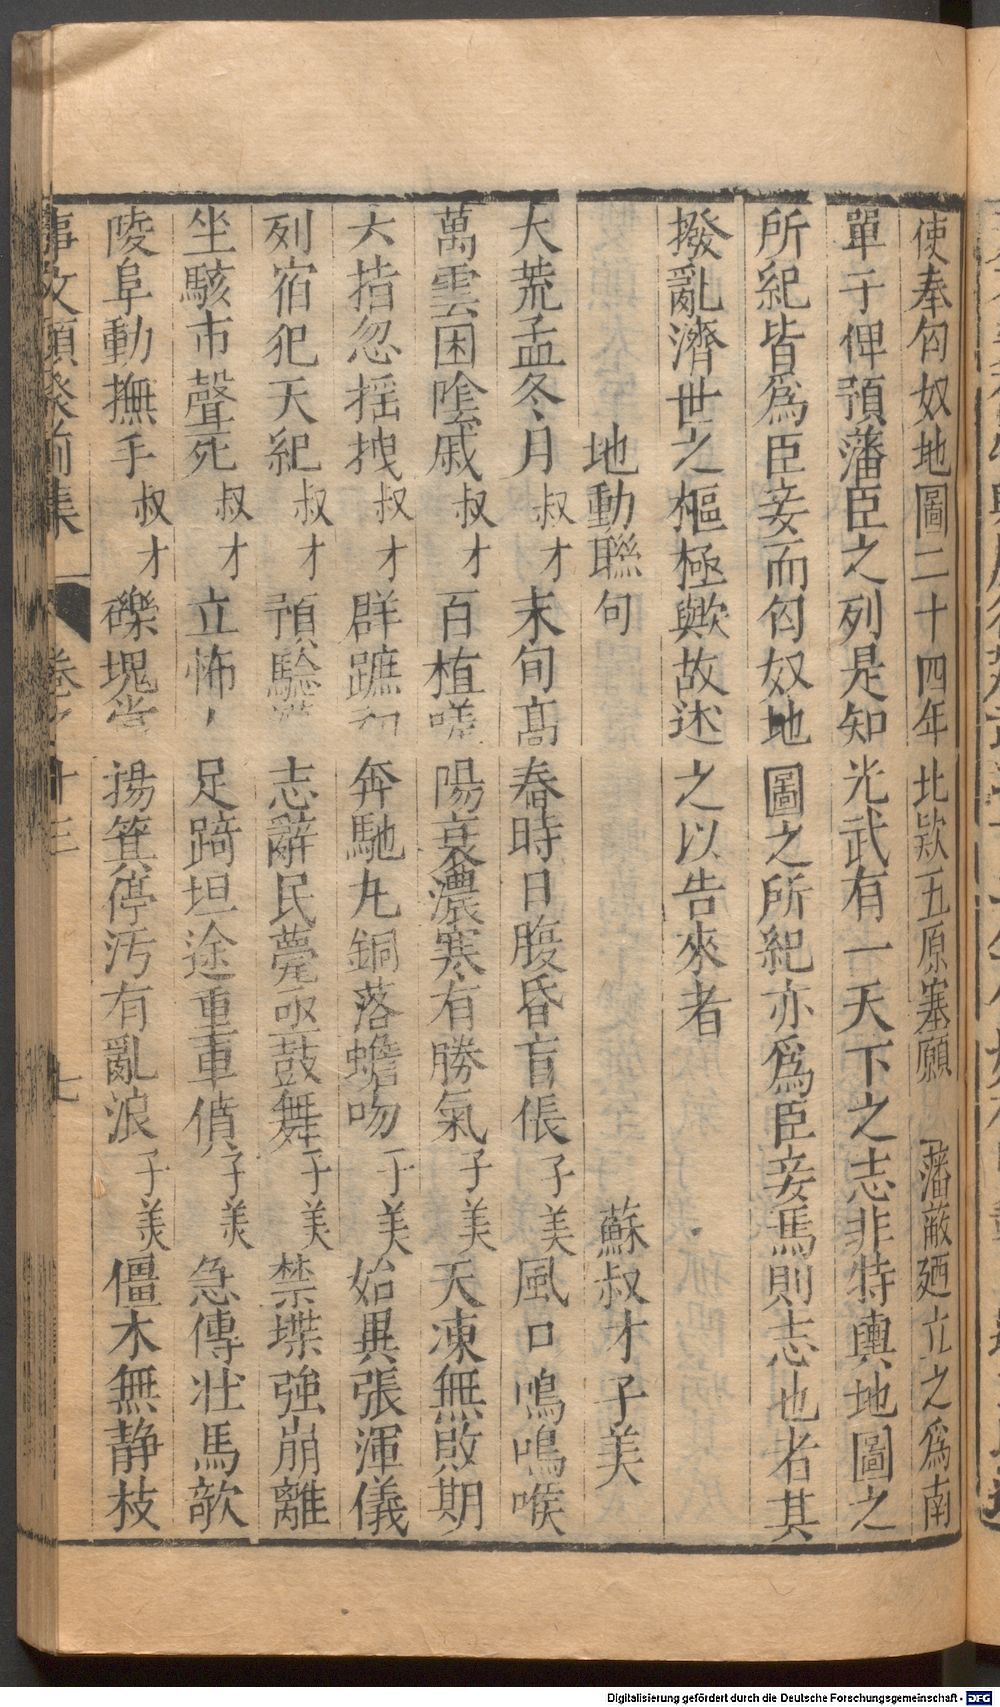 使奉匈奴地圖二十四年北欵五原塞願藩蔽廼立之爲南
單于俾預藩臣之列是知光武有一天下之志非特輿地圖之
所紀皆爲臣妾而匈奴地圖之所紀亦爲臣妾焉則志也者其
撥亂濟世之樞極歟故述之以告來者
地動聯句 蘇叔才子美
大荒孟冬月叔才末旬高春時日腹昏盲倀子美風口鳴鳴喉
萬雲困陰戚叔才百植嗟陽衰濃寒有勝氣子美天凍無敗期
六指忽搖拽叔才群蹠初奔馳丸銅落蟾吻子美始異張渾儀
列宿犯天紀叔才預驗 志辭民甍亟鼓舞子美禁堞強崩離
坐駭市聲死叔才立怖 足踦坦途重車僨子美急傳壯馬欹
陵阜動撫手叔才礫塊當揚箕停汚有亂浪子美僵木無静枝
事文類聚前集 卷之十三 七
Digitalisierung gefördert durch die Deutsche Forschungsgemeinschaft - DFG